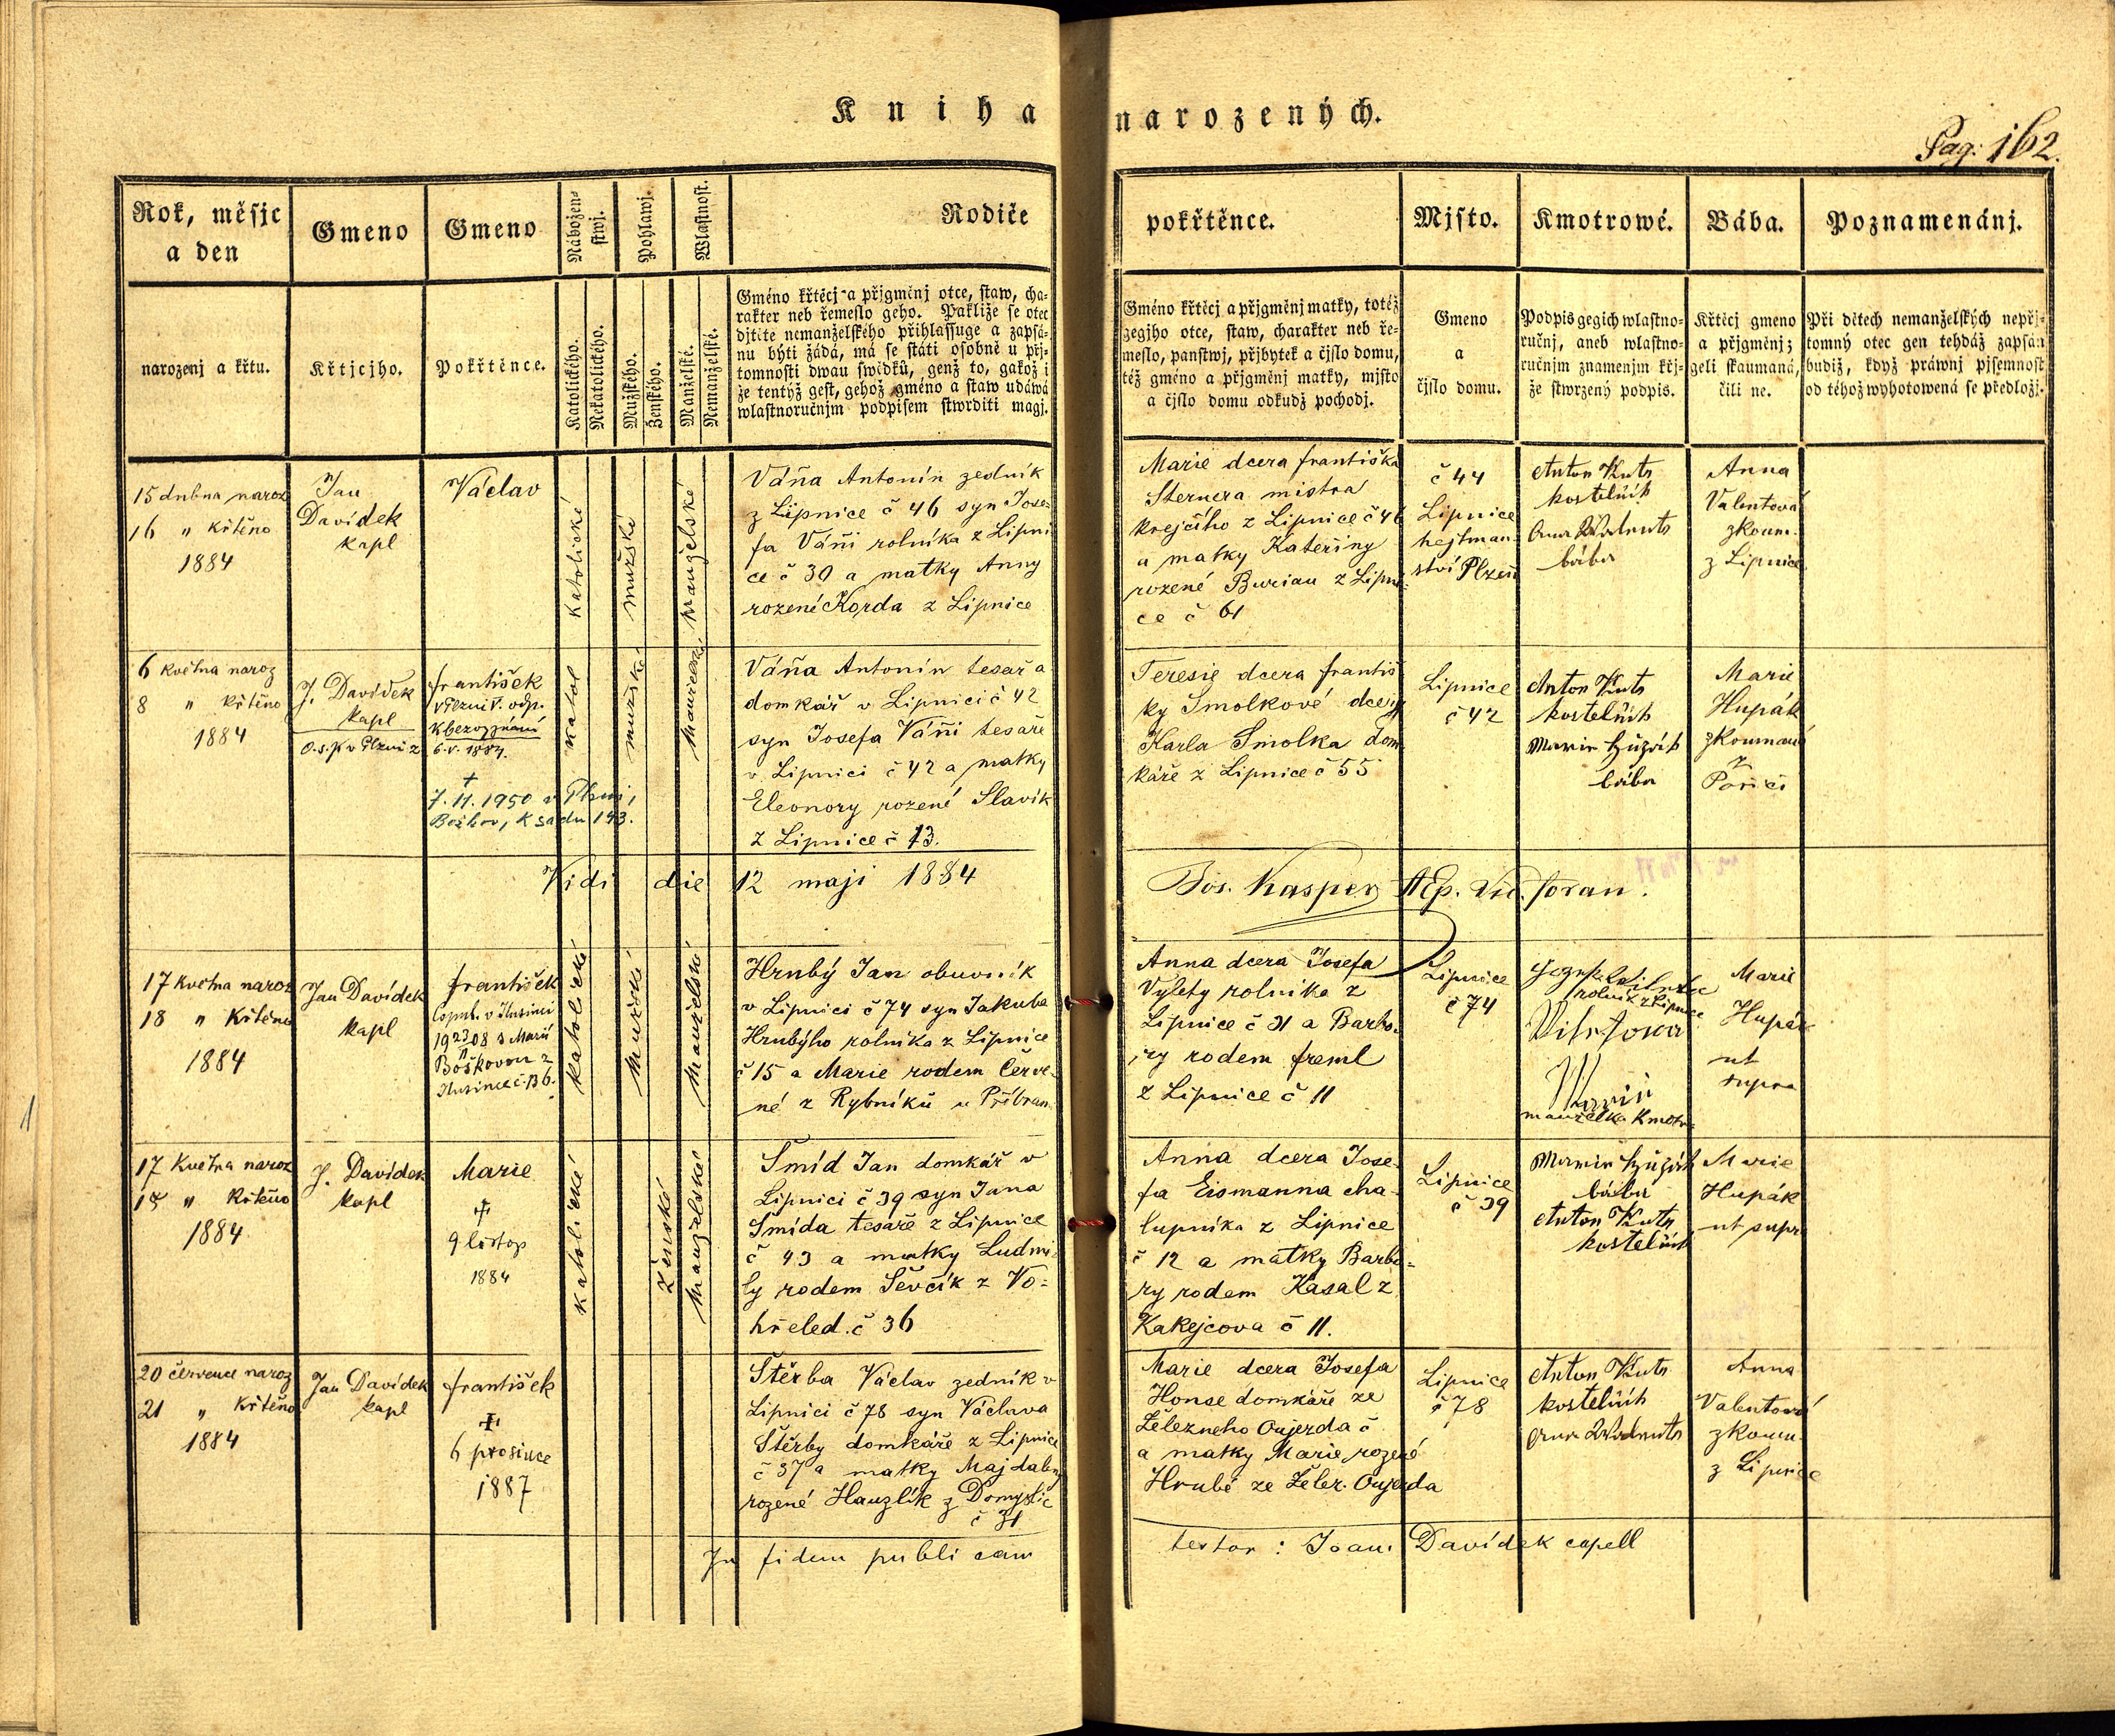 Kniha narozených.
Pag: 162.
Rok, měsjc
a den
narozenj a křtu.
Gmeno
Křtjcjho.
Gmeno
Pokřtěnce.
Nábožen=
stwj.
Katolického.
Nekatolického.
Pohlawj.
Mužského.
Ženského.
Wlastnost.
Manželské.
Nemanželské.
Rodiče
Gméno křtěcj a přjgměnj otce, staw, cha-
rakter neb řemeslo geho. Pakliže se otec
djtěte nemanželského přihlassuge a zapsá-
nu býti žádá, má se státi osobně u přj-
tomnosti dwau swědků, genž to, gakož i
že tentýž gest, gehož gméno a staw udáwá
wlastnoručnjm podpisem stwrditi magj.
pokřtěnce.
Gméno křtěcj a přjgměnj matky, totéž
gegjho otce, staw, charakter neb ře-
meslo, panstwj, přjbytek a čjslo domu,
též gméno a přjgměnj matky, mjsto
a čjslo domu odkudž pochodj.
Mjsto.
Gmeno
a
čjslo domu.
Kmotrowé.
Podpis gegich wlastno-
ručnj, aneb wlastno-
ručnjm znamenjm křj-
že stwrzený podpis.
Bába.
Křtěcj gmeno
a přjgměnj;
geli skaumaná,
čili ne.
Poznamenánj.
Při dětech nemanželských nepřj-
tomný otec gen tehdáž zapsán
budiž, když práwnj pjsemnost
od téhož wyhotowená se předložj.
15 dubna naroz
16 " Křtěno
1884
Jan
Davídek
kapl
Václav
Katolické
mužské
manželské
Váňa Antonín zedník
z Lipnice č 46 syn Jose-
fa Váni rolníka z Lipni
ce č 30 a matky Anny
rozené Korda z Lipnice
Marie dcera františka
Sternera mistra
krejčího z Lipnice č 46
a matky Kateřiny
rozené Burian z Lipni-
ce č 61
č 44
Lipnice
hejtman-
ství Plzeň
Anton Kuts
kostelník
bába
Anna
Valentová
zkoum.
z Lipnice
6 května naroz
8 " křtěno
1884
J. Davídek
kapl
františek
6.V. 1884.
+
7.11.1950 v Plzni,
Božkov, K sadu 193.
katol
mužské
Váňa Antonín tesař a
domkář v Lipnici č 42
syn Josefa Váni tesaře
v Lipnici č 42 a matky
Eleonory rozené Slavík
z Lipnice č 13.
Teresie dcera františ
ky Smolkové dcery
Karla Smolka dom
káře z Lipnice č 55
Lipnice
č 42
Anton Kuts
kostelník
bába
Marie
Hupák
zkoumaná
z
Poříčí
Vidi die 12 maji 1884
Jos. Kasper
17 Května naroz
18 " Křtěno
1884
Jan Davídek
kapl
františek
Katolické
Mužské
Manželské
Hrubý Jan obuvník
v Lipnici č 74 syn Jakuba
Hrubýho rolníka z Lipnice
č 15 a Marie rodem Červe-
né z Rybníků u Příbram
Anna dcera Josefa
Výlety rolníka z
Lipnice č 31 a Barbo-
ry rodem freml
z Lipnice č 11
Lipnice
č 74
rolník z Lipnice
Marie
manželka kmotra
Marie
Hupák
ut
supra
17 Května naroz
18 " Křtěno
1884
J. Davídek
kapl
Marie
+
9 listop
1884
Katolické
ženské
Manželské
Šmíd Jan domkář v
Lipnici č 39 syn Jana
Šmída tesaře z Lipnice
č 43 a matky Ludmi-
ly rodem Ševčík z Vo=
hřeled. č 36
Anna dcera Jose-
fa Eismanna cha-
lupníka z Lipnice
č 12 a matky Barbo-
ry rodem Kasal z
Kakejcova č 11.
Lipnice
č 39
bába
Anton Kuts
kostelník
Marie
Hupák
ut supra
20 července naroz
21 " Křtěno
1884
Jan Davídek
kapl
františek
+
6 prosince
1887
Štěrba Václav zedník v
Lipnici č 78 syn Václava
Štěrby domkáře z Lipnice
č 37 a matky Majdaleny
rozené Hauzlík z Domyslic
č 31
Marie dcera Josefa
Honse domkáře ze
Železneho Oujezda č
a matky Marie rozené
Hrubé ze Želez. Oujezda
Lipnice
č 78
Anton Kuts
kostelník
Anna
Valentová
zkoum.
z Lipnice
In fidem publicam
testor: Joan. Davídek capell